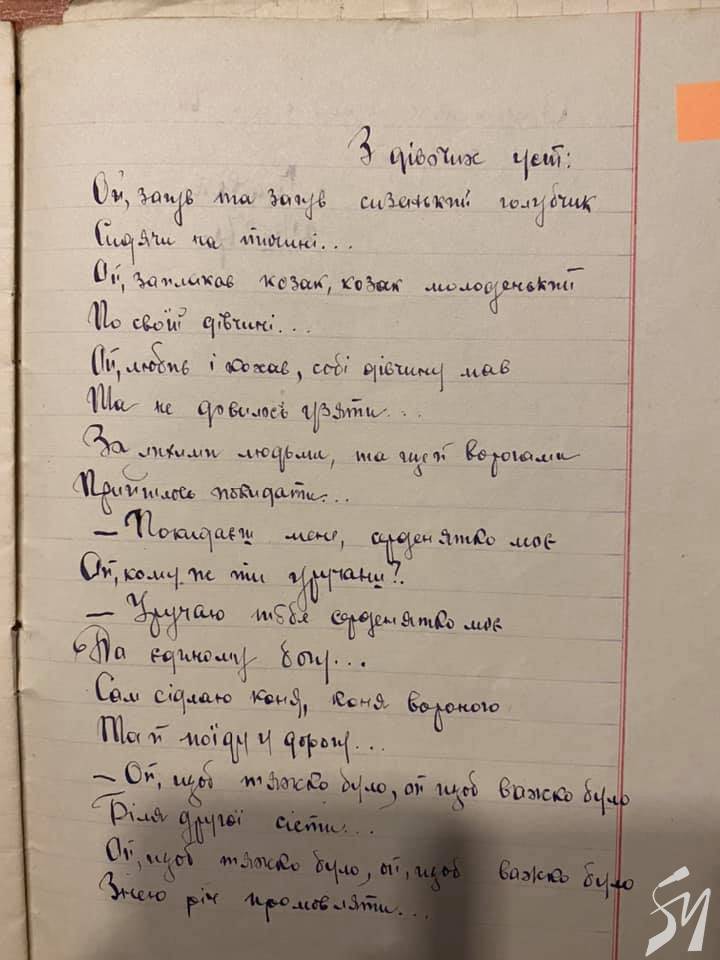 З дівочих уст:
Ой, загув та загув сизенький голубчик
Сидячи на тичині...
Ой, заплакав козак, козак молоденький
По своїй дівчині...
Ой, любив і кохав, собі дівчину мав
Та не довилось узяти...
За лихими людьми, та щей ворогами
Прийшлось покидати...
— Покидаєш мене, серденятко моє
Ой, кому ж ти уручаеш?
— Уручаю тебе серденятко моє
Та єдиному богу...
Сам сідлаю коня, коня вороного
Та й поїду у дорогу...
— Ой, щоб тяжко було, ой щоб важко було
Біля другої сісти...
Ой, щоб тяжко було, ой, щоб важко було
Знею річ промовляти...
БУ